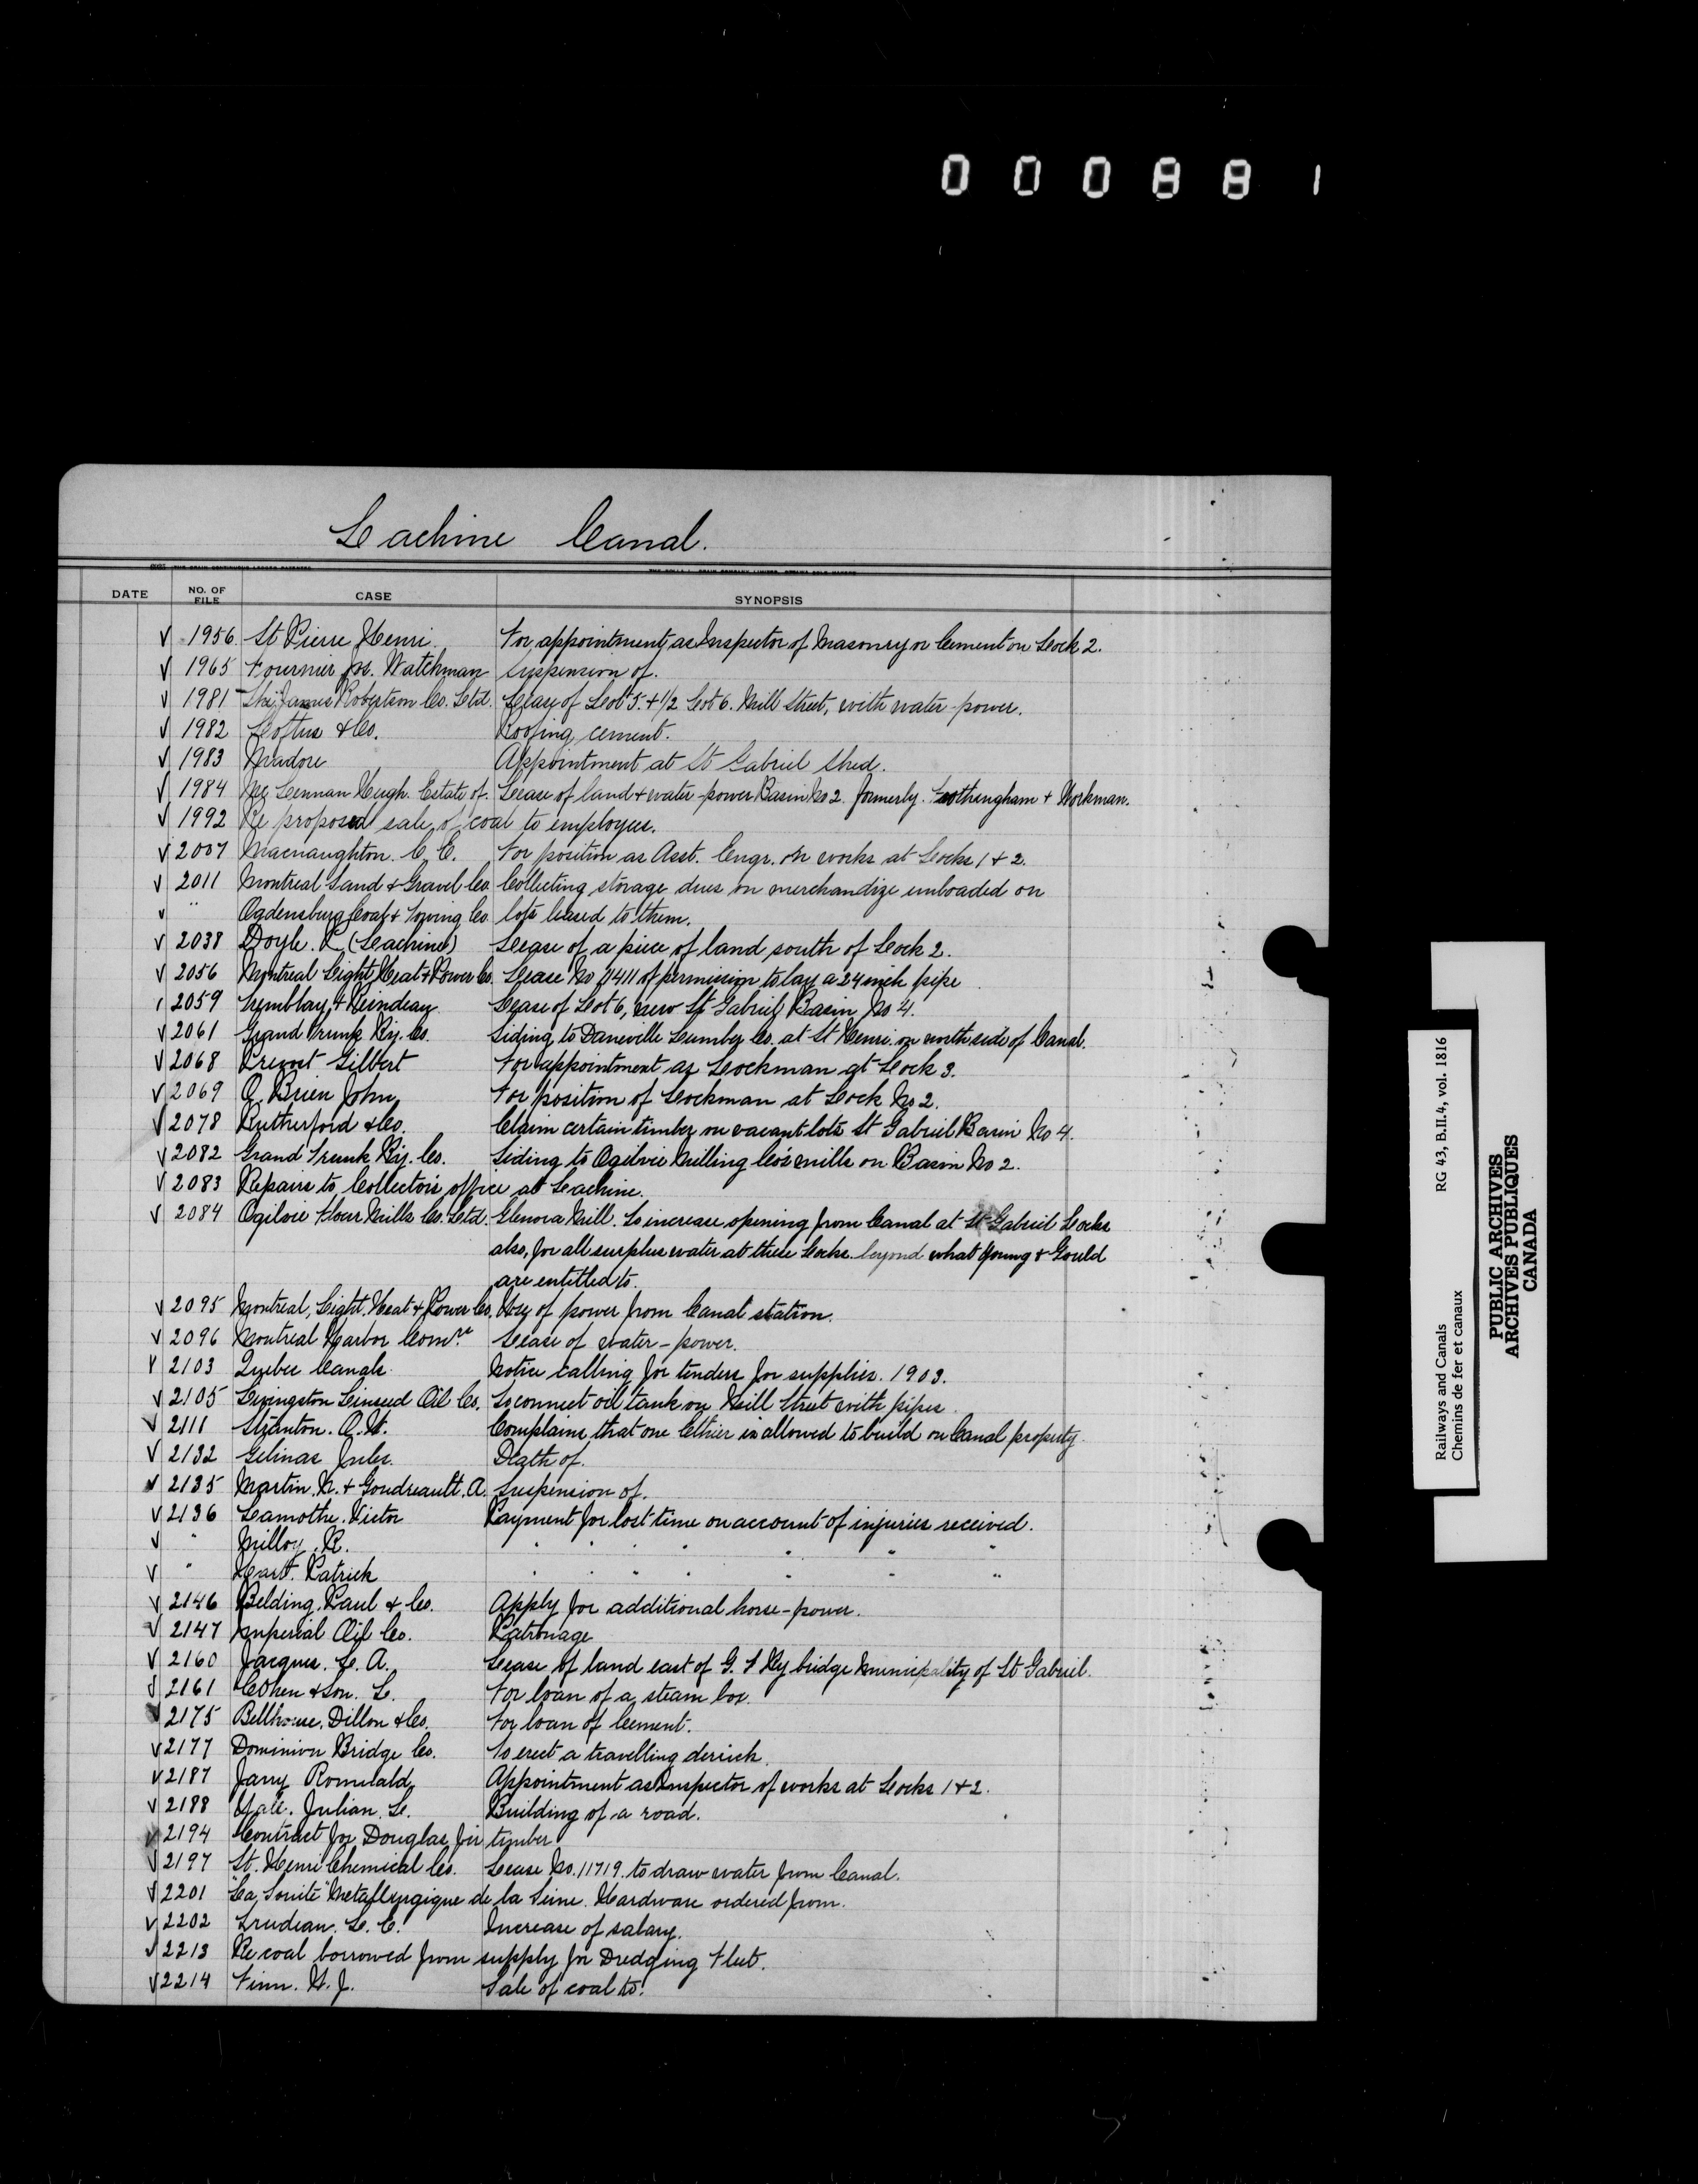 000881
Lachine Canal.
DATE NO. OF FILE CASE SYNOPSIS
√ 1956 St Pierre Henri. For appointment as Inspector of Masonry or Cement on Lock 2.
√ 1965 Fournier Jos. Watchman Suspension of.
√ 1981 The James Robertson Co. Ltd. Lease of Lot 5. + 1/2 Lot 6. Mill Street, with water-power.
√ 1982 Loftus & Co. Roofing cement.
√ 1983 Madore Appointment at St Gabriel Shed.
√ 1984 McLennan Hugh. Estate of. Lease of land & water-power Basin No 2. formerly. Frothingham & Workman.
√ 1992 Re proposed sale of coal to employees.
√ 2007 Macnaughton. C. E. For position as Asst. Engr. on works at Locks 1 & 2.
√ 2011 Montreal Sand & Gravel Co. Collecting storage dues on merchandize unloaded on
√ " Ogdensburg Coal & Towing Co. lots leased to them.
√ 2038 Doyle. P. (Lachine) Lease of a piece of land south of Lock 2.
√ 2056 Montreal Light, Heat & Power Co. Lease No 11411 of permission to lay a 24 inch pipe
√ 2059 Tremblay & Reindeau Lease of Lot 6, new St Gabriel Basin No 4.
√ 2061 Grand Trunk Ry. Co. Siding to Daneville Lumber Co. at St Henri on north side of Canal.
√ 2068 Prevost Gilbert For appointment as Lockman at Lock 3.
√ 2069 O'Brien John For position of Lockman at Lock No 2.
√ 2078 Rutherford & Co. Claim certain timber on vacant lots St Gabriel Basin No 4.
√ 2082 Grand Trunk Ry. Co. Siding to Ogilvie Milling Co's mills on Basin No 2.
√ 2083 Repairs to Collector's office at Lachine.
√ 2084 Ogilvie Flour Mills Co. Ltd. Glenora Mill. To increase opening from Canal at St Gabriel Locks
also, for all surplus water at these Locks beyond what Young & Gould
are entitled to.
√ 2095 Montreal, Light, Heat & Power Co. Use of power from Canal station.
√ 2096 Montreal Harbor Comrs. Lease of water-power.
√ 2103 Quebec Canals. Notice calling for tenders for supplies. 1903.
√ 2105 Livingston Linseed Oil Co. To connect oil tank on Mill Street with pipes
√ 2111 Stanton. O. H. Complains that one Ethier is allowed to build on Canal property.
√ 2132 Gelinas Jules. Death of.
√ 2135 Martin. N. & Goudreault. A. Suspension of.
√ 2136 Lamothe. Victor Payment for lost time on account of injuries received.
√ " Milloy. R. " " " " " " "
√ " Hart. Patrick " " " " " " "
√ 2146 Belding. Paul & Co. Apply for additional horse-power.
√ 2147 Imperial Oil Co. Patronage
√ 2160 Jacques. L. A. Lease of land east of G. T Ry bridge Municipality of St Gabriel.
√ 2161 Cohen & Son. L. For loan of a steam box.
√ 2175 Bellhouse, Dillon & Co. For loan of Cement.
√ 2177 Dominion Bridge Co. To erect a travelling derrick
√ 2187 Jarry Romuald Appointment as Inspector of works at Locks 1 & 2.
√ 2188 Yale. Julian. L. Building of a road.
√ 2194 Contract for Douglas fir timber
√ 2197 St. Henri Chemical Co. Lease No. 11719. to draw water from Canal.
√ 2201 "La Sonite" Metallurgique de la Seine. Hardware ordered from.
√ 2202 Trudeau. L. C. Increase of salary.
√ 2213 Re coal borrowed from supply for Dredging Fleet.
√ 2214 Finn. H. J. Sale of coal to.
Railways and Canals RG 43, B.II.4, vol. 1816
Chemins de fer et canaux
PUBLIC ARCHIVES
ARCHIVES PUBLIQUES
CANADA